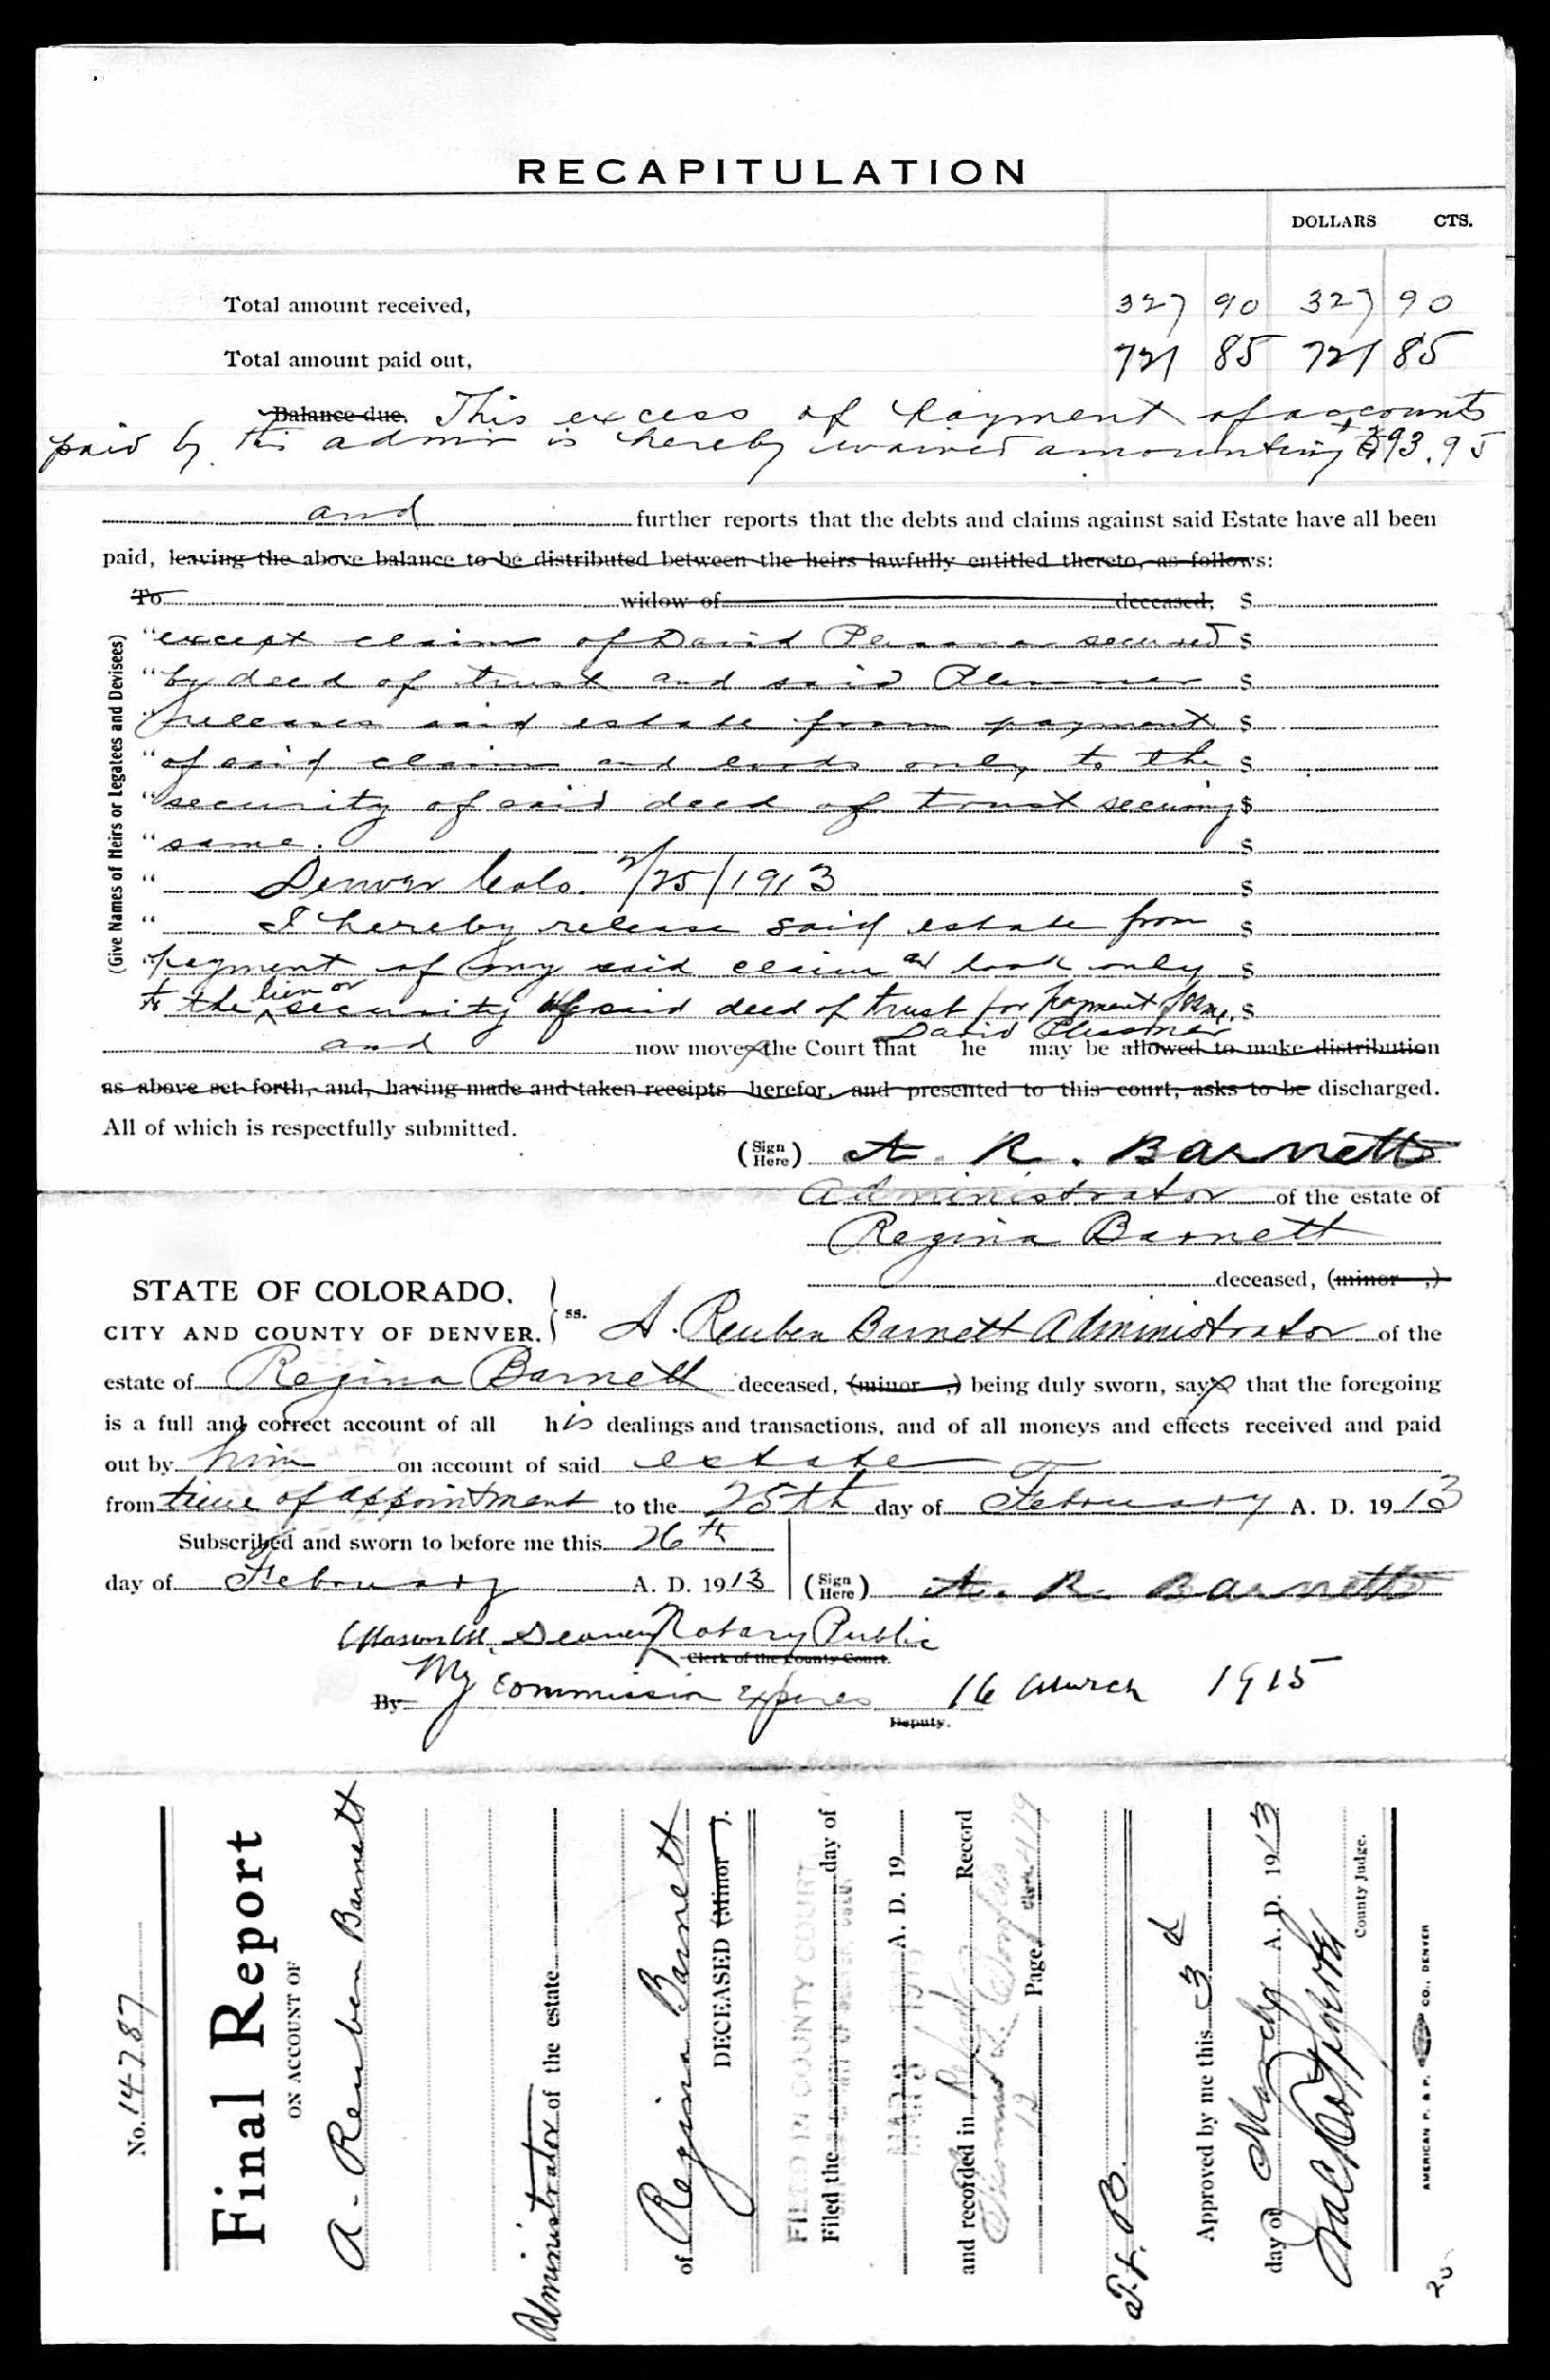 RECAPITULATION
DOLLARS CTS.
Total amount received, 327 90 327 90
Total amount paid out, 721 85 721 85
Balance due. This excess of payment of accounts
paid by this admr is hereby waived amounting to $393.95
and further reports that the debts and claims against said Estate have all been
paid, leaving the above balance to be distributed between the heirs lawfully entitled thereto, as follows:
To widow of deceased, $
(Give Names of Heirs or Legatees and Devisees)
" except claim of David Plessner secured $
" by deed of trust and said Plessner $
" releases said estate from payment $
" of said claim and looks only to the $
" security of said deed of trust securing $
" same. $
" Denver Colo. 2/25/1913 $
" I hereby release said estate from $
" payment of my said claim and look only $
to the lien or security of said deed of trust for payment of same. $
David Plessner
and now moves the Court that he may be allowed to make distribution
as above set forth, and, having made and taken receipts herefor, and presented to this court, asks to be discharged.
All of which is respectfully submitted.
(Sign Here) A. R. Barnett
Administrator of the estate of
Regina Barnett
deceased, (minor ,)
STATE OF COLORADO,
CITY AND COUNTY OF DENVER. } ss. A. Reuben Barnett Administrator of the
estate of Regina Barnett deceased, (minor ,) being duly sworn, says that the foregoing
is a full and correct account of all his dealings and transactions, and of all moneys and effects received and paid
out by him on account of said estate
from time of appointment to the 25th day of February A. D. 1913
Subscribed and sworn to before me this 26th
day of February A. D. 1913 (Sign Here) A. R. Barnett
Mason M. Notary Public
Clerk of the County Court.
By My commission expires 16 March 1915
Deputy.
No. 14787
Final Report
ON ACCOUNT OF
A. Reuben Barnett
Administrator of the estate
of Regina Barnett
DECEASED (Minor ).
FILED IN COUNTY COURT
Filed the day of
A. D. 19
MAR 3 1913
and recorded in Record
12 Page 479
Thomas L.
T. L. B.
Approved by me this 3d
day of March A. D. 1913
County Judge.
AMERICAN P. & P. CO., DENVER